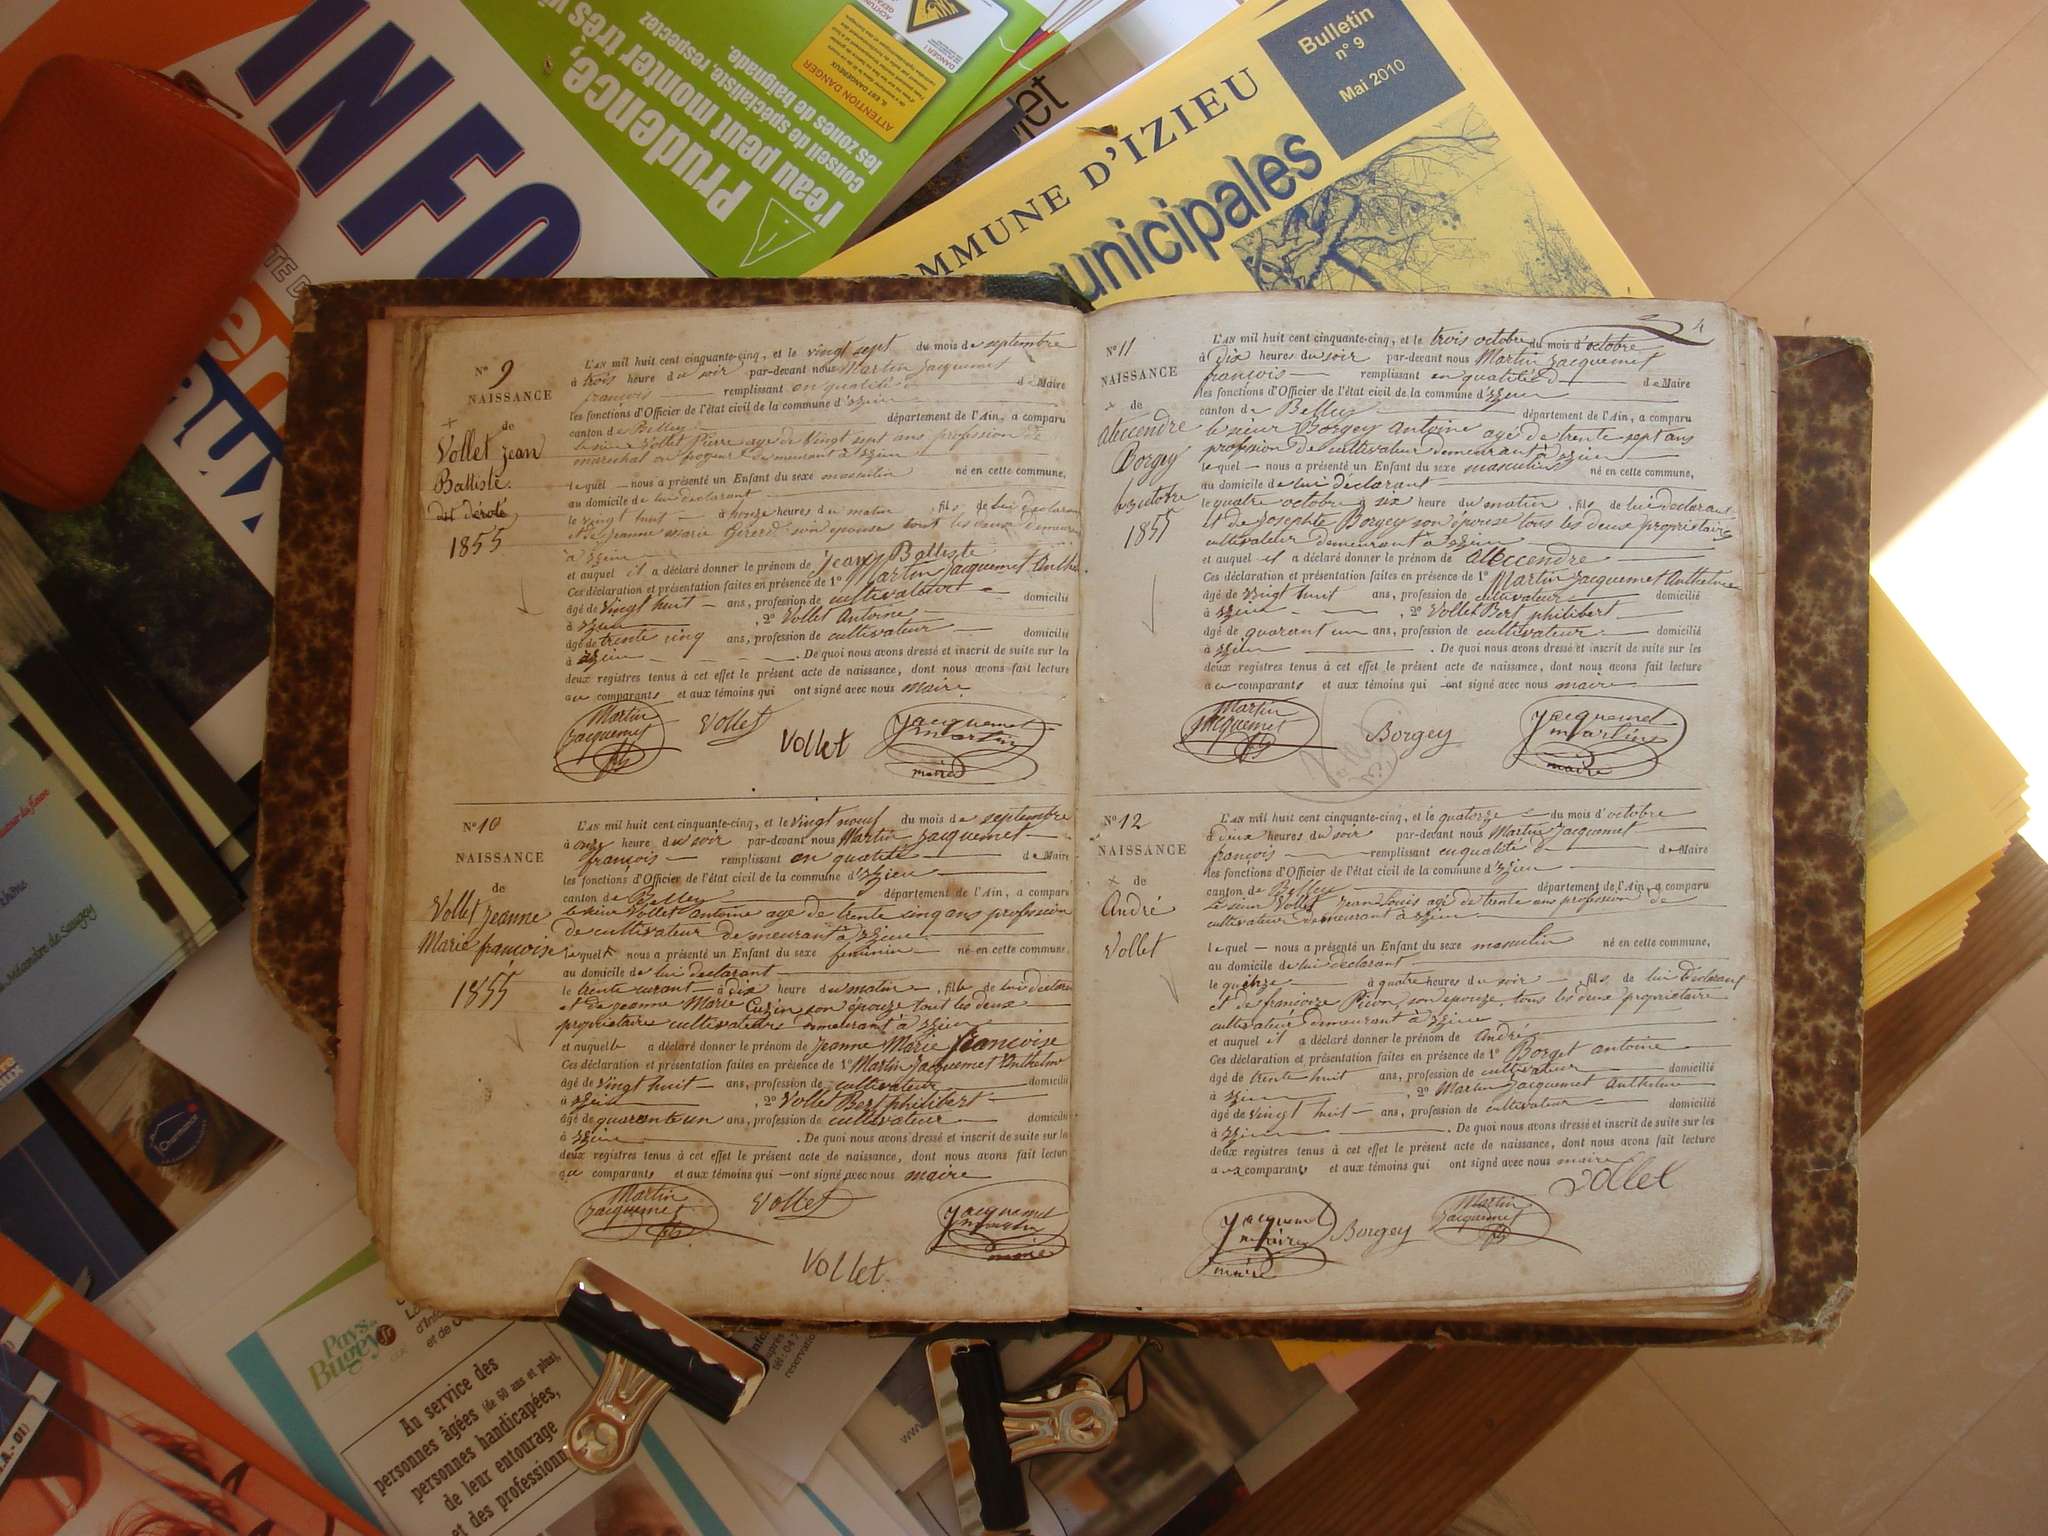 INFO
Prudence,
l'eau peut monter très vi
conseil de spécialiste, respectez
les zones de baignade.
ATTENTION DANGER
COMMUNE D'IZIEU
unicipales
Bulletin
n° 9
Mai 2010
N° 9
NAISSANCE
de
Vollet Jean
Battiste.
dit dérolé
1855
L'AN mil huit cent cinquante-cinq, et le vingt sept du mois de septembre
à trois heure du soir par-devant nous Martin Jacquemet
françois remplissant en qualité de Maire
les fonctions d'Officier de l'état civil de la commune d'izieu
canton de Belley département de l'Ain, a comparu
le sieur Vollet Pierre age de vingt sept ans profession de
marechal demeurant à izieu
lequel nous a présenté un Enfant du sexe masculin né en cette commune,
au domicile de lui declarant
le vingt huit à honze heures du matin, fils de lui declarant
et de jeanne marie Girerd son epouse tout les deux demeurant
à izieu
et auquel il a déclaré donner le prénom de jean Battiste
Ces déclaration et présentation faites en présence de 1° Martin Jacquemet Anthe
âgé de vingt huit ans, profession de cultivateur domicilié
à izieu, 2° Vollet Antoine
âgé de trente cinq ans, profession de cultivateur domicilié
à izieu. De quoi nous avons dressé et inscrit de suite sur les
deux registres tenus à cet effet le présent acte de naissance, dont nous avons fait lecture
au comparants et aux témoins qui ont signé avec nous maire
Martin Vollet Vollet Jacquemet
Jacquemet martin
maire
N° 10
NAISSANCE
de
Vollet Jeanne
Marie françoise
1855
L'AN mil huit cent cinquante-cinq, et le vingt neuf du mois de septembre
à onze heure du soir par-devant nous Martin Jacquemet
françois remplissant en qualité de Maire
les fonctions d'Officier de l'état civil de la commune d'izieu
canton de Belley département de l'Ain, a comparu
le sieur Vollet antoine age de trente cinq ans profession
de cultivateur demeurant à izieu
lequel nous a présenté un Enfant du sexe feminin né en cette commune,
au domicile de lui declarant
le trente curant à dix heure du matin, fille de lui declara
et de jeanne Marie Cuzin son épouze tout les deux
propriétaires cultivateurs demeurant à izieu
et auquelle a déclaré donner le prénom de jeanne Marie francoise
Ces déclaration et présentation faites en présence de 1° Martin Jacquemet Anthelme
âgé de vingt huit ans, profession de cultivateur domicilié
à izieu, 2° Vollet Bert philibert
âgé de quarante un ans, profession de cultivateur domicilié
à izieu. De quoi nous avons dressé et inscrit de suite sur les
deux registres tenus à cet effet le présent acte de naissance, dont nous avons fait lecture
au comparants et aux témoins qui ont signé avec nous maire
Martin Vollet Jacquemet
Jacquemet martin
maire
Vollet
4
N° 11
NAISSANCE
de
alexcendre
Borgey
octobre
1855
L'AN mil huit cent cinquante-cinq, et le trois octobre du mois d'octobre
à dix heures du soir par-devant nous Martin Jacquemet
françois remplissant en qualité de Maire
les fonctions d'Officier de l'état civil de la commune d'izieu
canton de Belley département de l'Ain, a comparu
le sieur Borgey Antoine age de trente sept ans
profession de cultivateur demeurant à izieu
lequel nous a présenté un Enfant du sexe masculin né en cette commune,
au domicile de lui déclarant
le quatre octobre à six heure du matin, fils de lui declarant
et de Josephte Borgey son épouse tous les deux propriétaire
cultivateur demeurant à izieu
et auquel il a déclaré donner le prénom de alexcendre
Ces déclaration et présentation faites en présence de 1° Martin Jacquemet Anthelme
âgé de vingt huit ans, profession de cultivateur domicilié
à izieu, 2° Vollet Bert philibert
âgé de quarant un ans, profession de cultivateur domicilié
à izieu. De quoi nous avons dressé et inscrit de suite sur les
deux registres tenus à cet effet le présent acte de naissance, dont nous avons fait lecture
au comparants et aux témoins qui ont signé avec nous maire
Martin Borgey Jacquemet
Jacquemet martin
maire
N° 12
NAISSANCE
de
André
Vollet
L'AN mil huit cent cinquante-cinq, et le quatorze du mois d'octobre
à deux heures du soir par-devant nous Martin Jacquemet
françois remplissant en qualité de Maire
les fonctions d'Officier de l'état civil de la commune d'izieu
canton de Belley département de l'Ain, a comparu
le sieur Vollet Jean Louis agé de trente ans profession de
cultivateur demeurant à izieu
lequel nous a présenté un Enfant du sexe masculin né en cette commune,
au domicile de lui declarant
le quinze à quatre heures du soir, fils de lui declarant
et de françoize Pivon son epouze tous les deux propriétaire
cultivateur demeurant à izieu
et auquel il a déclaré donner le prénom de andré
Ces déclaration et présentation faites en présence de 1° Borget antoine
âgé de trente huit ans, profession de cultivateur domicilié
à izieu, 2° Martin Jacquemet Anthelme
âgé de vingt huit ans, profession de cultivateur domicilié
à izieu. De quoi nous avons dressé et inscrit de suite sur les
deux registres tenus à cet effet le présent acte de naissance, dont nous avons fait lecture
aux comparants et aux témoins qui ont signé avec nous maire
Vollet
Jacquemet Borgey Martin
maire Jacquemet
Pays du
Bugey
Au service des
personnes âgées (de 60 ans et plus),
personnes handicapées,
de leur entourage
et des professionn